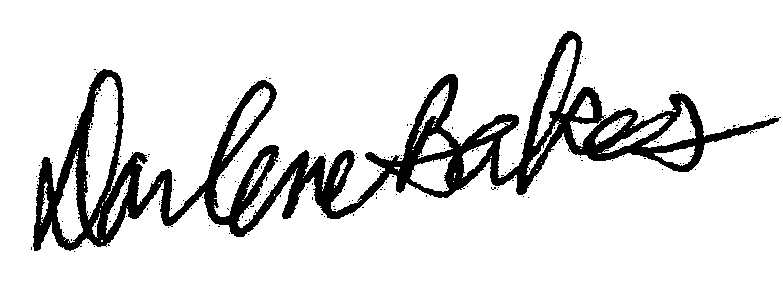 Darlene Bakes